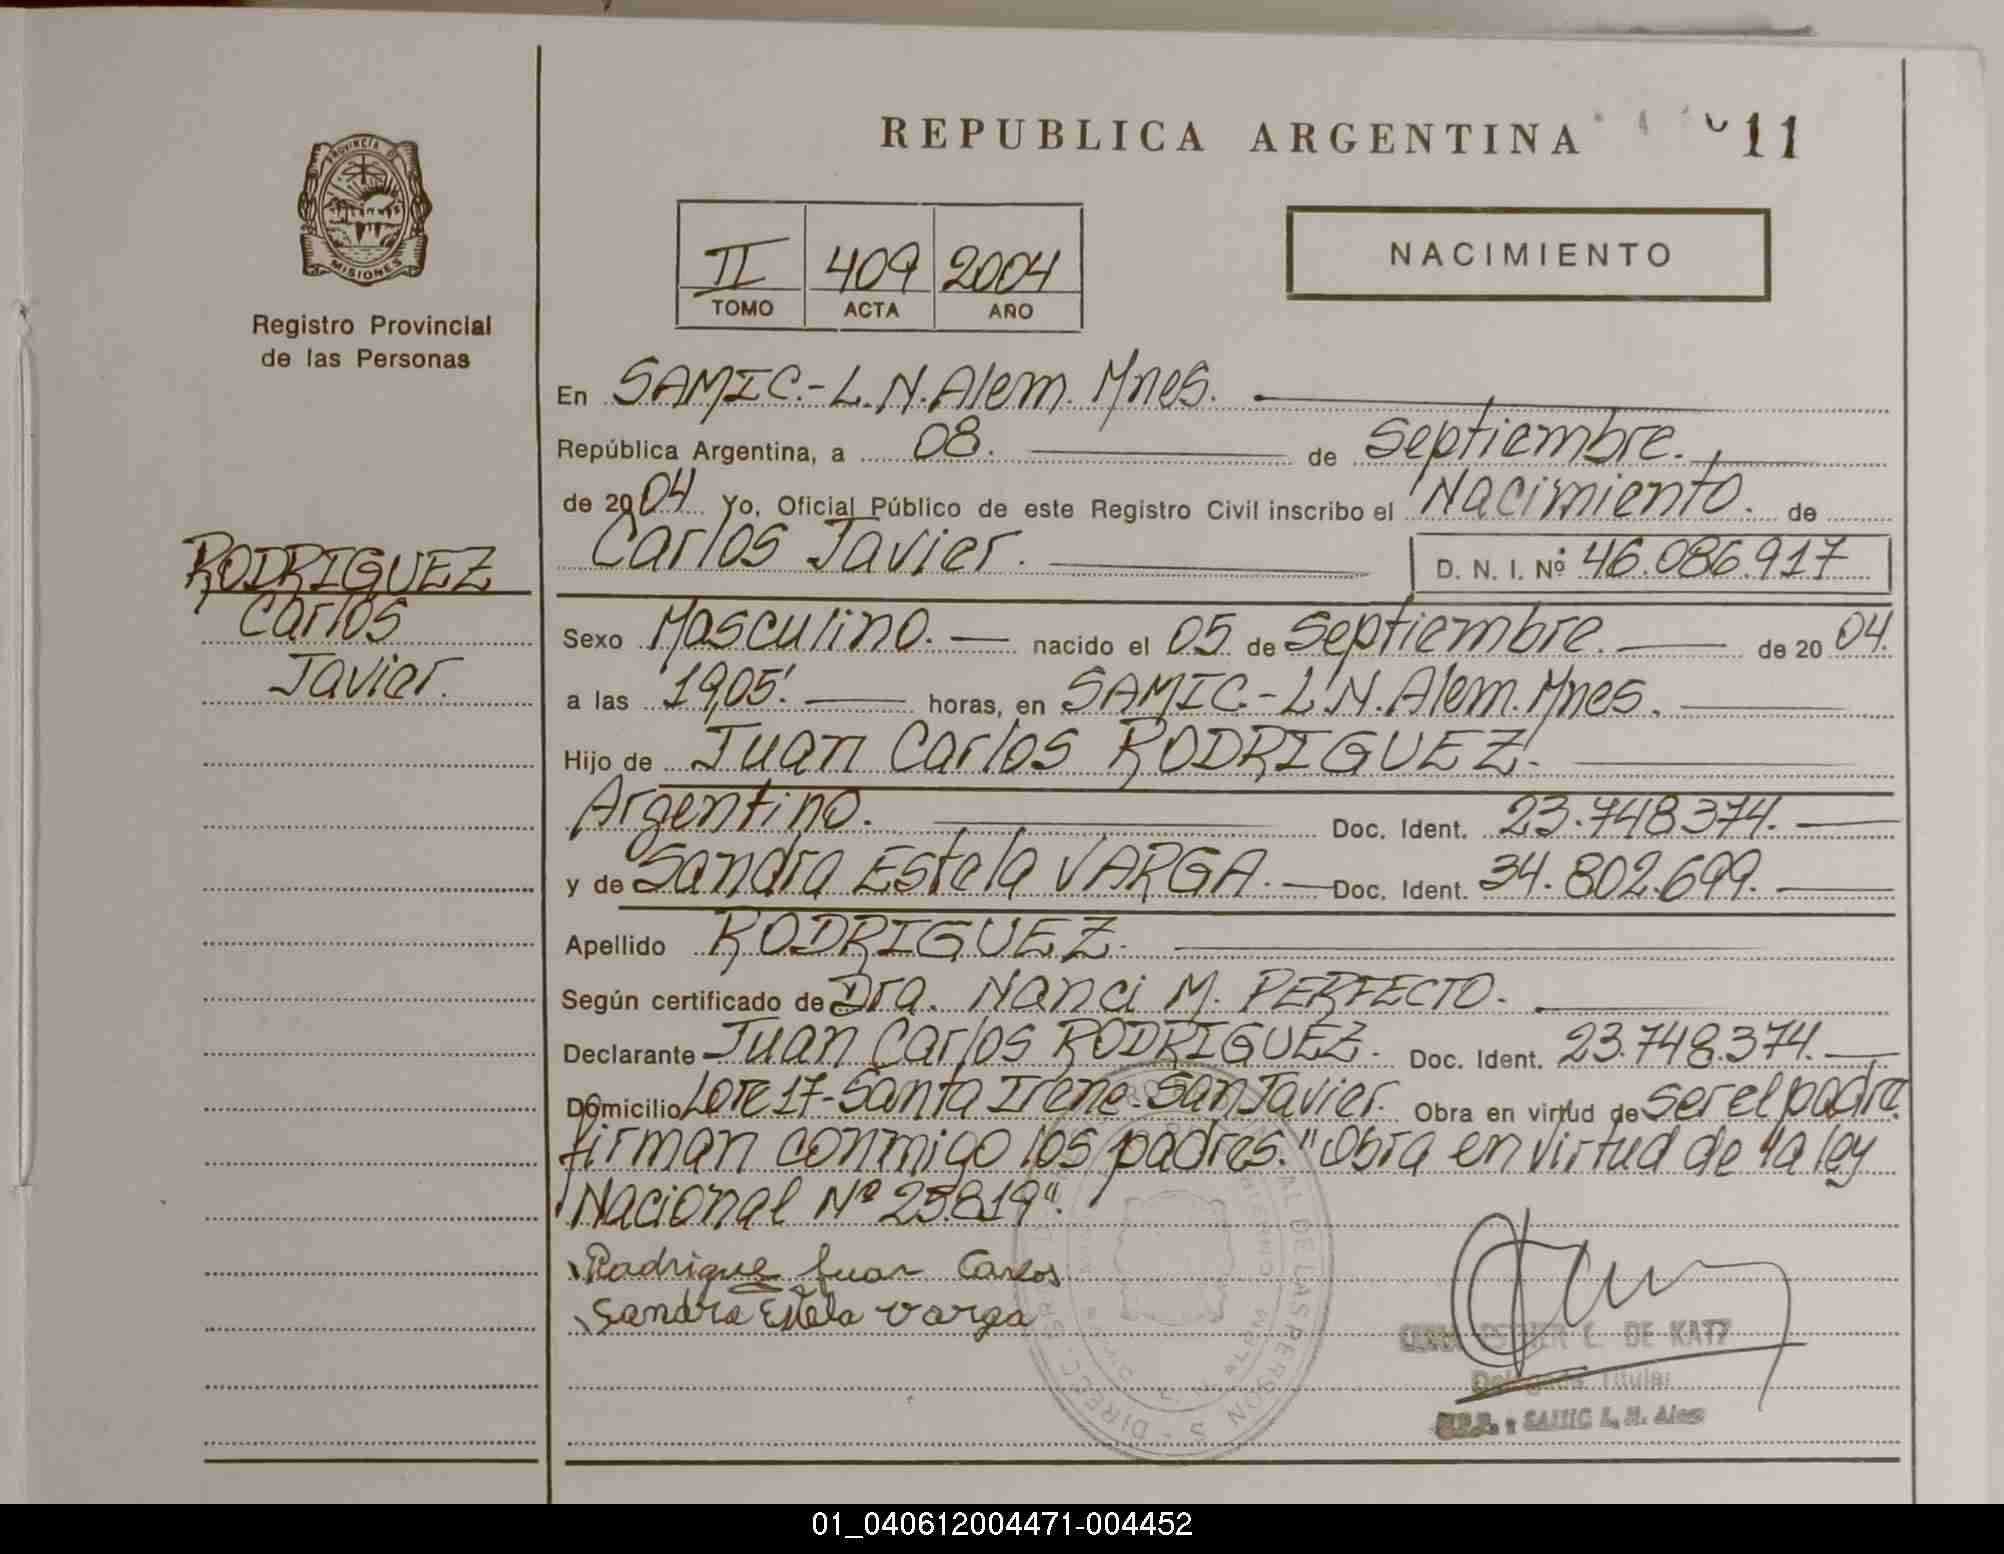 REPUBLICA ARGENTINA
11
PROVINCIA DE
MISIONES
Registro Provincial
de las Personas
II 409 2004
TOMO ACTA AÑO
NACIMIENTO
En SAMIC.-L.N.Alem. Mnes.
República Argentina, a 08. de Septiembre.
de 2004 Yo, Oficial Público de este Registro Civil inscribo el Nacimiento. de
Carlos Javier. D. N. I. Nº 46.086.917
RODRIGUEZ
Carlos
Javier.
Sexo Masculino. nacido el 05 de Septiembre. de 20 04.
a las 19,05'. horas, en SAMIC-L.N.Alem. Mnes.
Hijo de Juan Carlos RODRIGUEZ.
Argentino. Doc. Ident. 23.748374.
y de Sandra Estela VARGA. Doc. Ident. 34.802.699.
Apellido RODRIGUEZ.
Según certificado de Dra. Nanci M. PERFECTO.
Declarante Juan Carlos RODRIGUEZ. Doc. Ident. 23.748.374.
Domicilio Lote 17-Santa Irene-San Javier. Obra en virtud de ser el padre
firman conmigo los padres. "Obra en virtud de la ley
Nacional Nº 25.819".
Rodrigue Juan Carlos
Sandra Estela Varga
ESTHER L. DE KATZ
Delegada Titular
SAMIC L. N. Alem
01_040612004471-004452